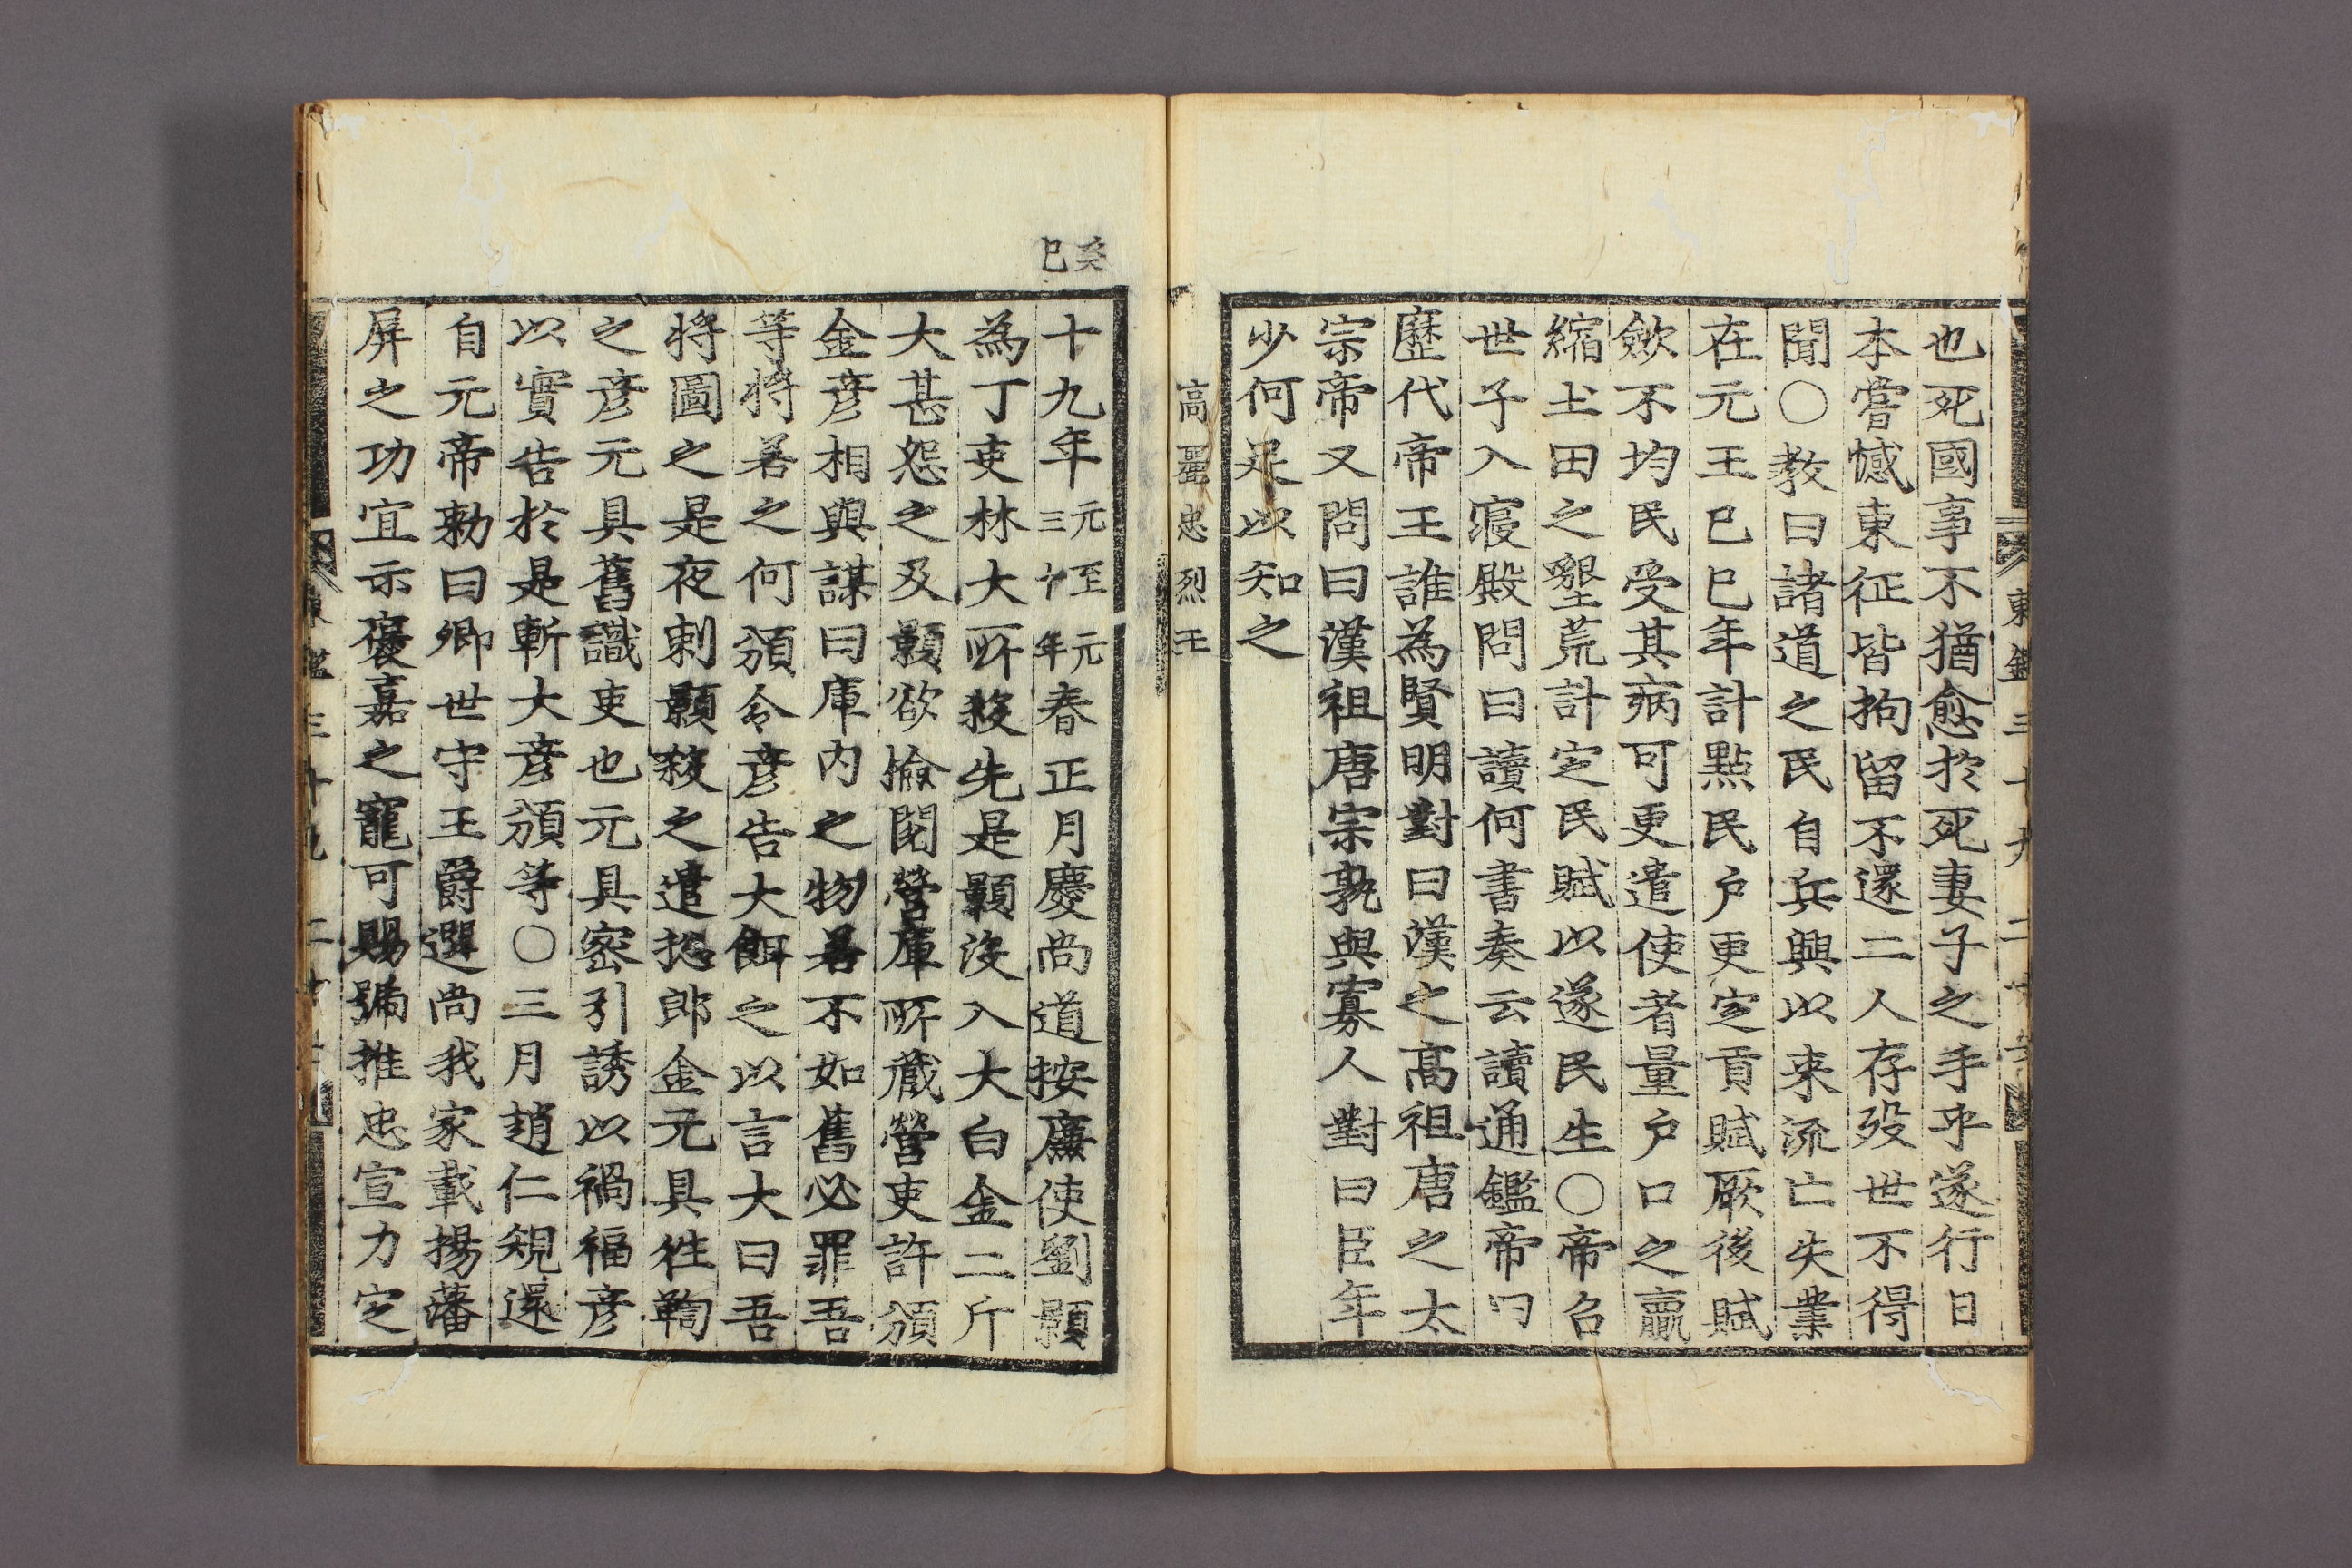 東鑑三十九 二十六
也死國事不猶愈於死妻子之手乎遂行日
本嘗憾東征皆拘留不還二人存歿世不得
聞○教曰諸道之民自兵興以来流亡失業
在元王己巳年計點民戶更定貢賦厥後賦
歛不均民受其病可更遣使者量戶口之贏
縮土田之墾荒計定民賦以遂民生○帝召
世子入寢殿問曰讀何書奏云讀通鑑帝曰
歷代帝王誰為賢明對曰漢之高祖唐之太
宗帝又問曰漢祖唐宗孰與寡人對曰臣年
少何足以知之
高麗忠烈王
癸巳
十九年元至元三十年春正月慶尙道按廉使劉顥
為丁吏林大所殺先是顥沒入大白金二斤
大甚怨之及顥欲撿閱營庫所藏營吏許頒
金彥相與謀曰庫内之物若不如舊必罪吾
等將若之何頒令彥告大餌之以言大曰吾
將圖之是夜刺顥殺之遣摠郎金元具徃鞫
之彥元具舊識吏也元具密引誘以禍福彥
以實告於是斬大彥頒等○三月趙仁規還
自元帝勑曰卿世守王爵選尙我家載揚藩
屏之功宜示褒嘉之寵可賜號推忠宣力定